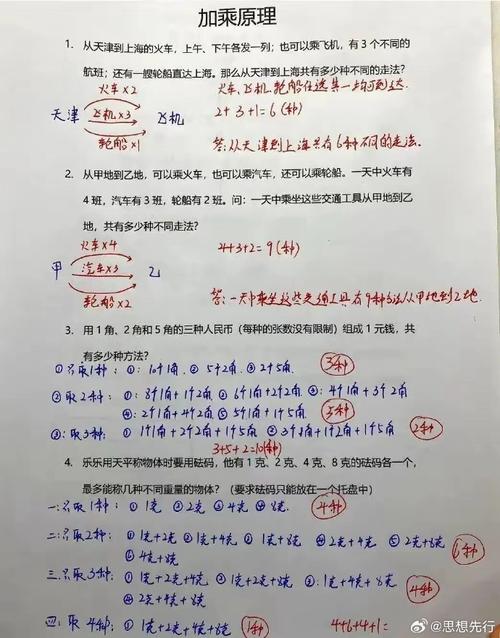 加乘原理
1. 从天津到上海的火车，上午、下午各发一列；也可以乘飞机，有 3 个不同的
航班；还有一艘轮船直达上海。那么从天津到上海共有多少种不同的走法？
火车×2 火车、飞机、轮船任选其一均可到达.
天津 飞机×3 飞机 2+3+1=6(种)
轮船×1 答:从天津到上海共有6种不同的走法.
2. 从甲地到乙地，可以乘火车，也可以乘汽车，还可以乘轮船。一天中火车有
4 班，汽车有 3 班，轮船有 2 班。问：一天中乘坐这些交通工具从甲地到乙
地，共有多少种不同走法？
火车×4 4+3+2=9(种)
甲 汽车×3 乙
轮船×2 答:一天中乘坐这些交通工具有9种方法从甲地到乙地.
3. 用 1 角、2 角和 5 角的三种人民币（每种的张数没有限制）组成 1 元钱，共
有多少种方法？
①只取1种: ①: 10个1角 ②. 5个2角 ③ 2个5角. 3种
②取2种: ①: 8个1角+1个2角 ②6个1角+2个2角 ③: 4个1角+3个2角
④: 2个1角+4个2角 ⑤5个1角+1个5角 5种
③: 取3种: ①1个1角+2个2角+1个5角 ②3个1角+1个2角+1个5角 2种
3+5+2=10(种)
4. 乐乐用天平称物体时要用砝码，他有 1 克、2 克、4 克、8 克的砝码各一个，
最多能称几种不同重量的物体？（要求砝码只能放在一个托盘中）
一:只取1种: ①1克 ②2克 ③4克 ④8克. 4种
二:只取2种: ①1克+2克 ②1克+4克 ③1克+8克 ④2克+4克. ⑤2克+8克
⑥4克+8克 6种
三.只取3种: ①1克+2克+4克 ②1克+2克+8克 ③:1克+4克+8克
④2克+4克+8克 4种
四: 取4种: ①1克+2克+4克+8克 1种 4+6+4+1=
@思想先行